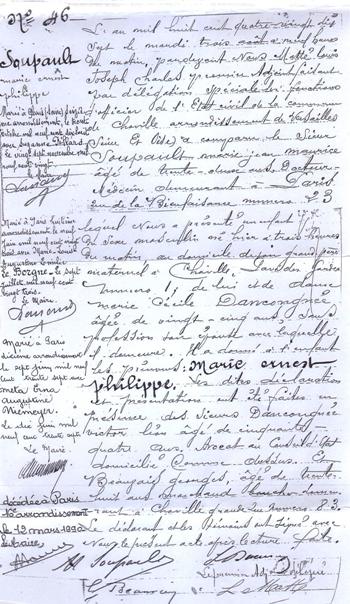 N° 46
Soupault
marie ernest
philippe
Marié à Paris
arrondissement, le trente
octobre mil neuf cent dix huit
avec Suzanne
le vingt sept novembre mil
neuf cent vingt
Marié à Paris huitième
arrondissement le
juin mil neuf cent vingt
trois avec Marie Louise
Le Borgne. Le sept
juillet mil neuf cent
vingt trois.
Le Maire
Marié à Paris
dixième arrondissement
le sept juin mil neuf
cent trente sept avec
meta Erna
Augustine
Niemeyer.
Le dix juin mil
neuf cent trente sept
Le Maire
décédé à Paris
16e arrondissement
le 12 mars 1990
L'an mil huit cent quatre vingt dix
sept le mardi trois août à neuf heures
du matin, pardevant Nous
Joseph Charles, premier Adjoint faisant
par délégation spéciale les fonctions
d'officier de l'Etat civil de la commune
de Chaville arrondissement de Versailles
(Seine et Oise) a comparu le Sieur
Soupault, marie jean maurice
âgé de trente-deux ans Docteur
Médecin demeurant à Paris
rue de la Bienfaisance numéro 23
lequel Nous a présenté un enfant
du sexe masculin né hier à trois heures
du matin, au domicile de son grand père
maternel à Chaville
numéro 1, de lui et de dame
marie Cécile Dancongnée
âgée de vingt-cinq ans, Sans
profession son épouse avec laquelle
il demeure. Il a donné à l'enfant
les prénoms: Marie ernest
philippe. Les dites déclaration
et présentation ont été faites en
présence des Sieurs Dancongnée
victor léon âgé de cinquante-
quatre ans, Avocat au Conseil d'Etat
domicilié comme dessus. Et
Beaurain georges, âgé de trente
huit ans
à Chaville grande rue numéro 83.
Le déclarant et les témoins ont signé avec
Nous le présent acte après lecture faite.
M Soupault
G Beaurain
Le premier Adjoint Délégué